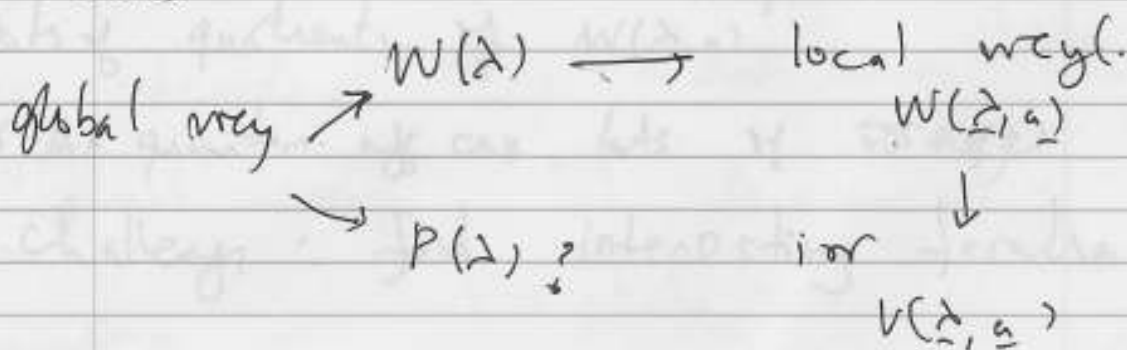 W(λ) → local weyl.
global weyl ↗ W(λ, a)
↘ ↓
P(λ) ? irr
V(λ, a)